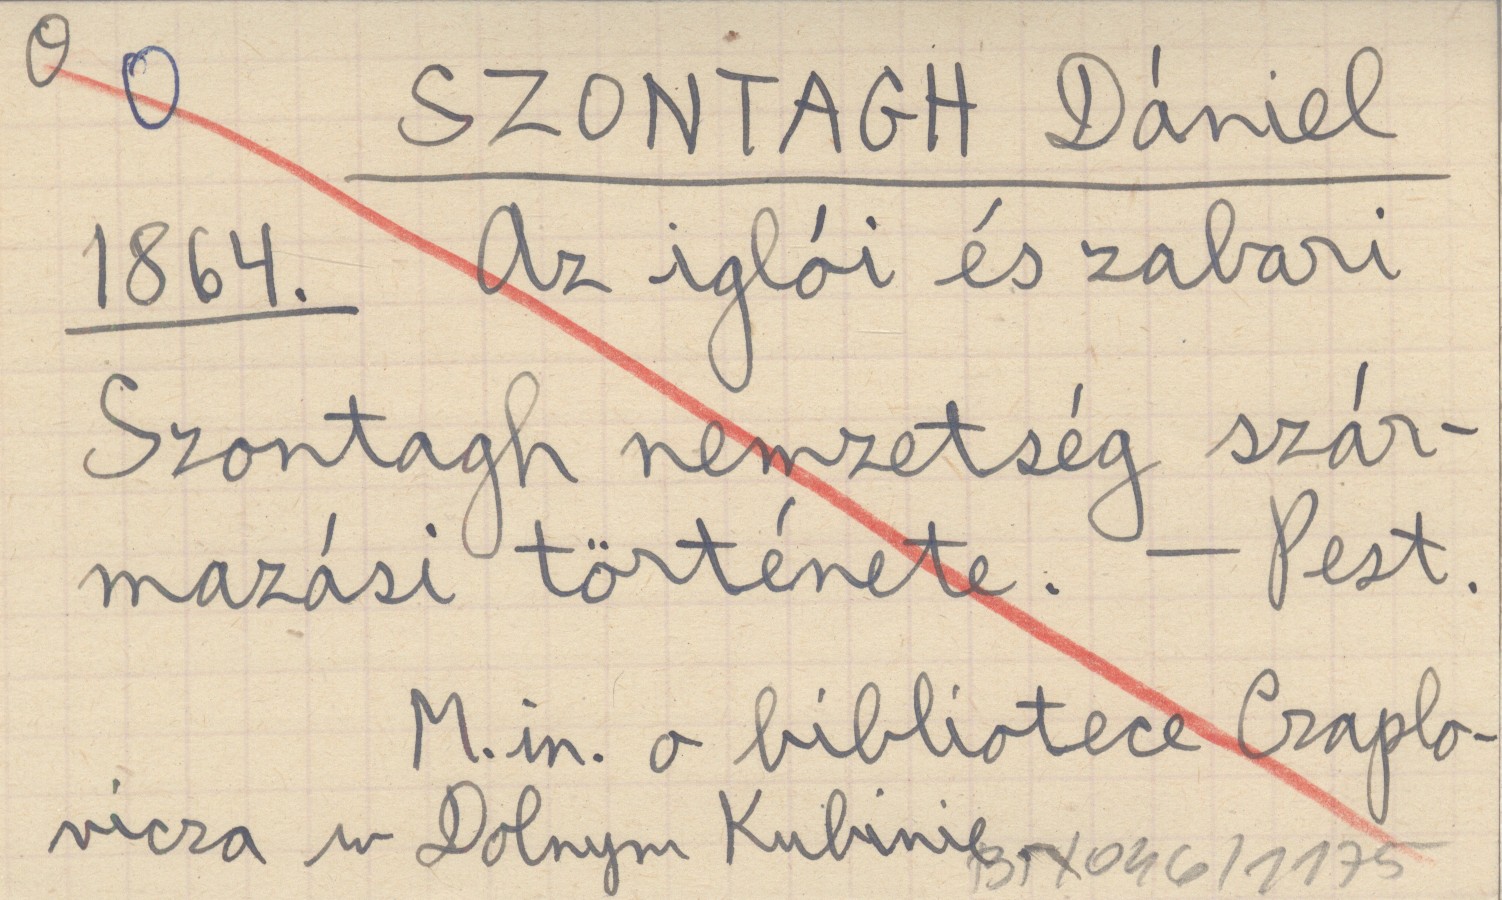 O O SZONTAGH Dániel
1864. Az iglói és zabari
Szontagh nemzetség szár-
mazási története. — Pest.
M.in. o bibliotece Czaplo-
vicza w Dolnym Kubinie.
BTX046/1175